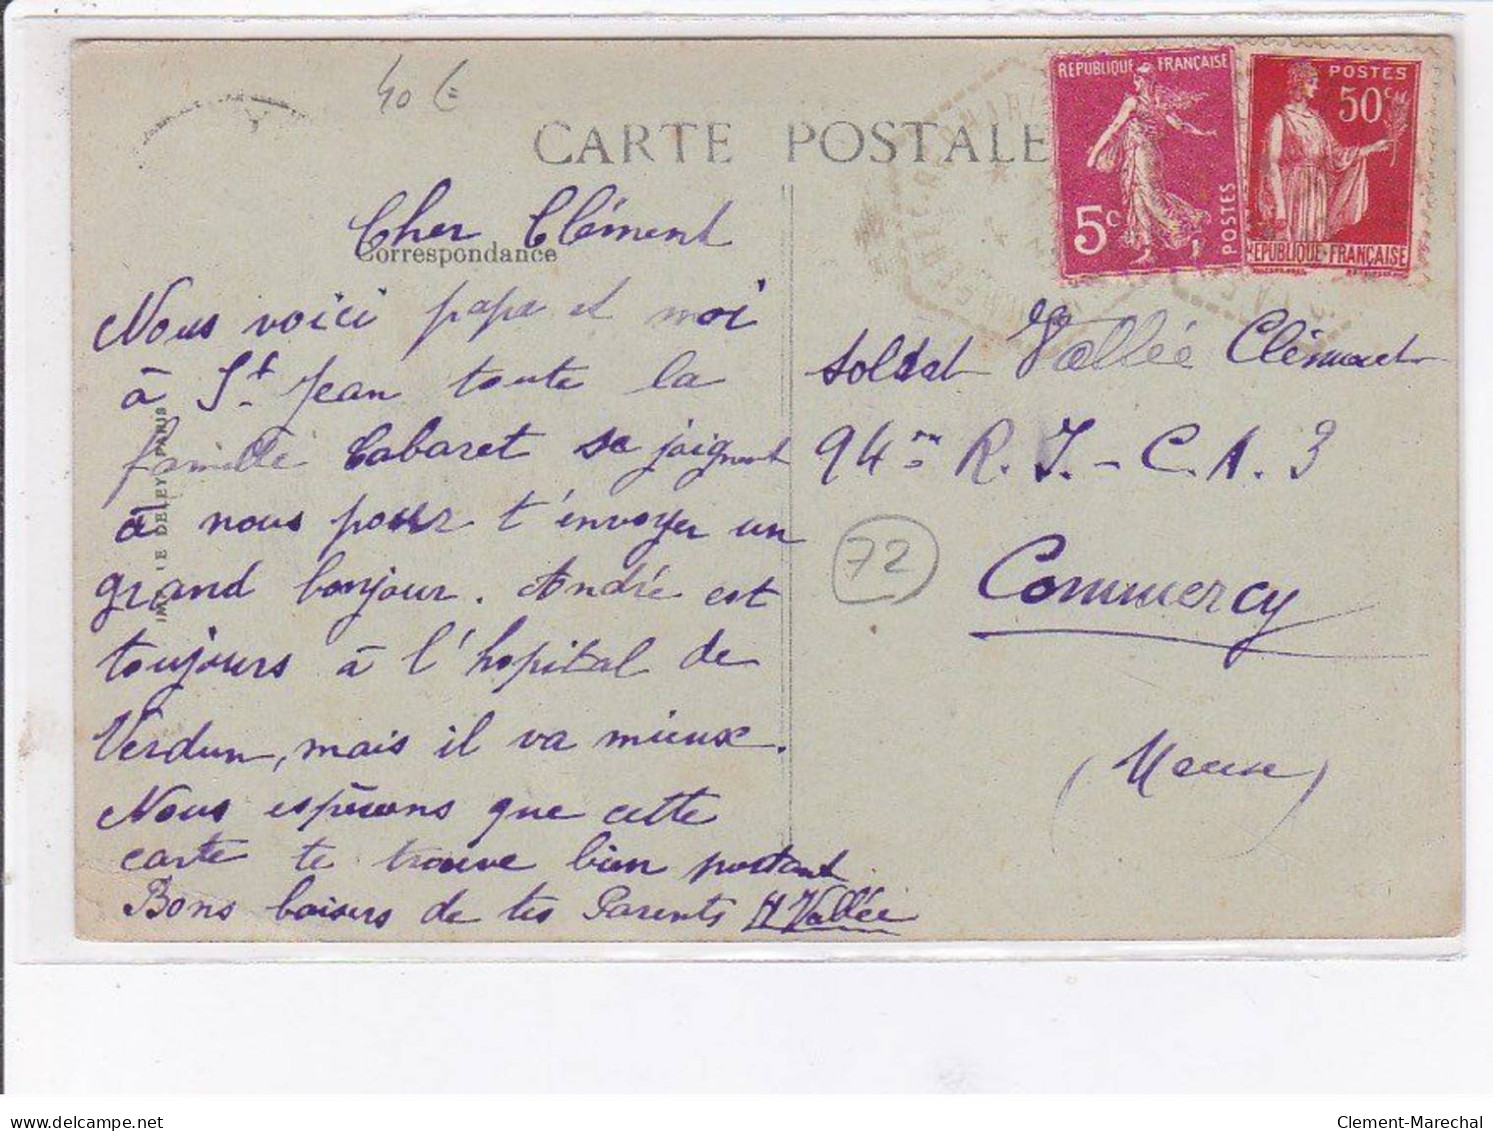 40 €
CARTE POSTALE
RÉPUBLIQUE FRANÇAISE
5c
POSTES
POSTES
50c
RÉPUBLIQUE FRANÇAISE
Correspondance
Cher Clément
Nous voici papa et moi
à St Jean toute la
famille Cabaret se joignent
à nous pour t'envoyer un
grand bonjour. André est
toujours à l'hopital de
Verdun, mais il va mieux.
Nous espérons que cette
carte te trouve bien portant
Bons baisers de tes Parents H Vallée
soldat Vallée Clément
94me R.I. - C.A. 3
72
Commercy
(Meuse)
DELEY, PARIS
Clement-Marechal
delcampe.net